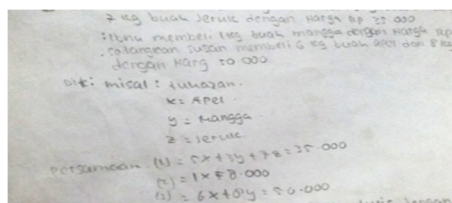 7 kg buah Jeruk dengan Harga Rp 35 000
: Ibnu membeli 1 kg buah mangga dengan Harga Rp
. Sedangkan Susan membeli 6 kg buah apel dan 8 kg
dengan Harg 50 000
Dit: misal:
x = Apel.
y = Mangga
z = Jeruk.
Persamaan (1) = 5x + 3y + 7z = 35.000
(2) = 1x 8.000
(3) = 6x + 8y = 50.000